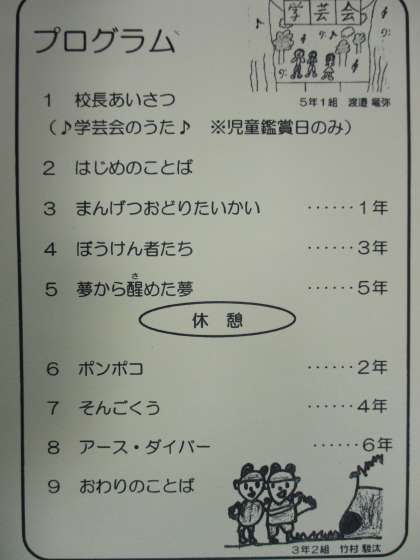 学芸会
プログラム
5年1組 渡邉 竜弥
1 校長あいさつ
(♪学芸会のうた♪ ※児童鑑賞日のみ)
2 はじめのことば
3 まんげつおどりたいかい ‥‥‥1年
4 ぼうけん者たち ‥‥‥3年
5 夢から醒めた夢 ‥‥‥5年
さ
休 憩
6 ポンポコ ‥‥‥2年
7 そんごくう ‥‥‥4年
8 アース・ダイバー ‥‥‥6年
9 おわりのことば
3年2組 竹村 駿汰